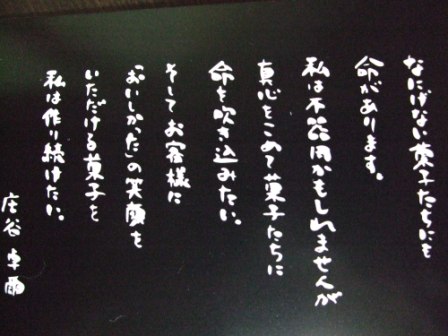 なにげない菓子たちにも
命があります。
私は不器用かもしれませんが
真心をこめて菓子たちに
命を吹き込みたい。
そしてお客様に
「おいしかった」の笑顔を
いただける菓子を
私は作り続けたい。
庄谷